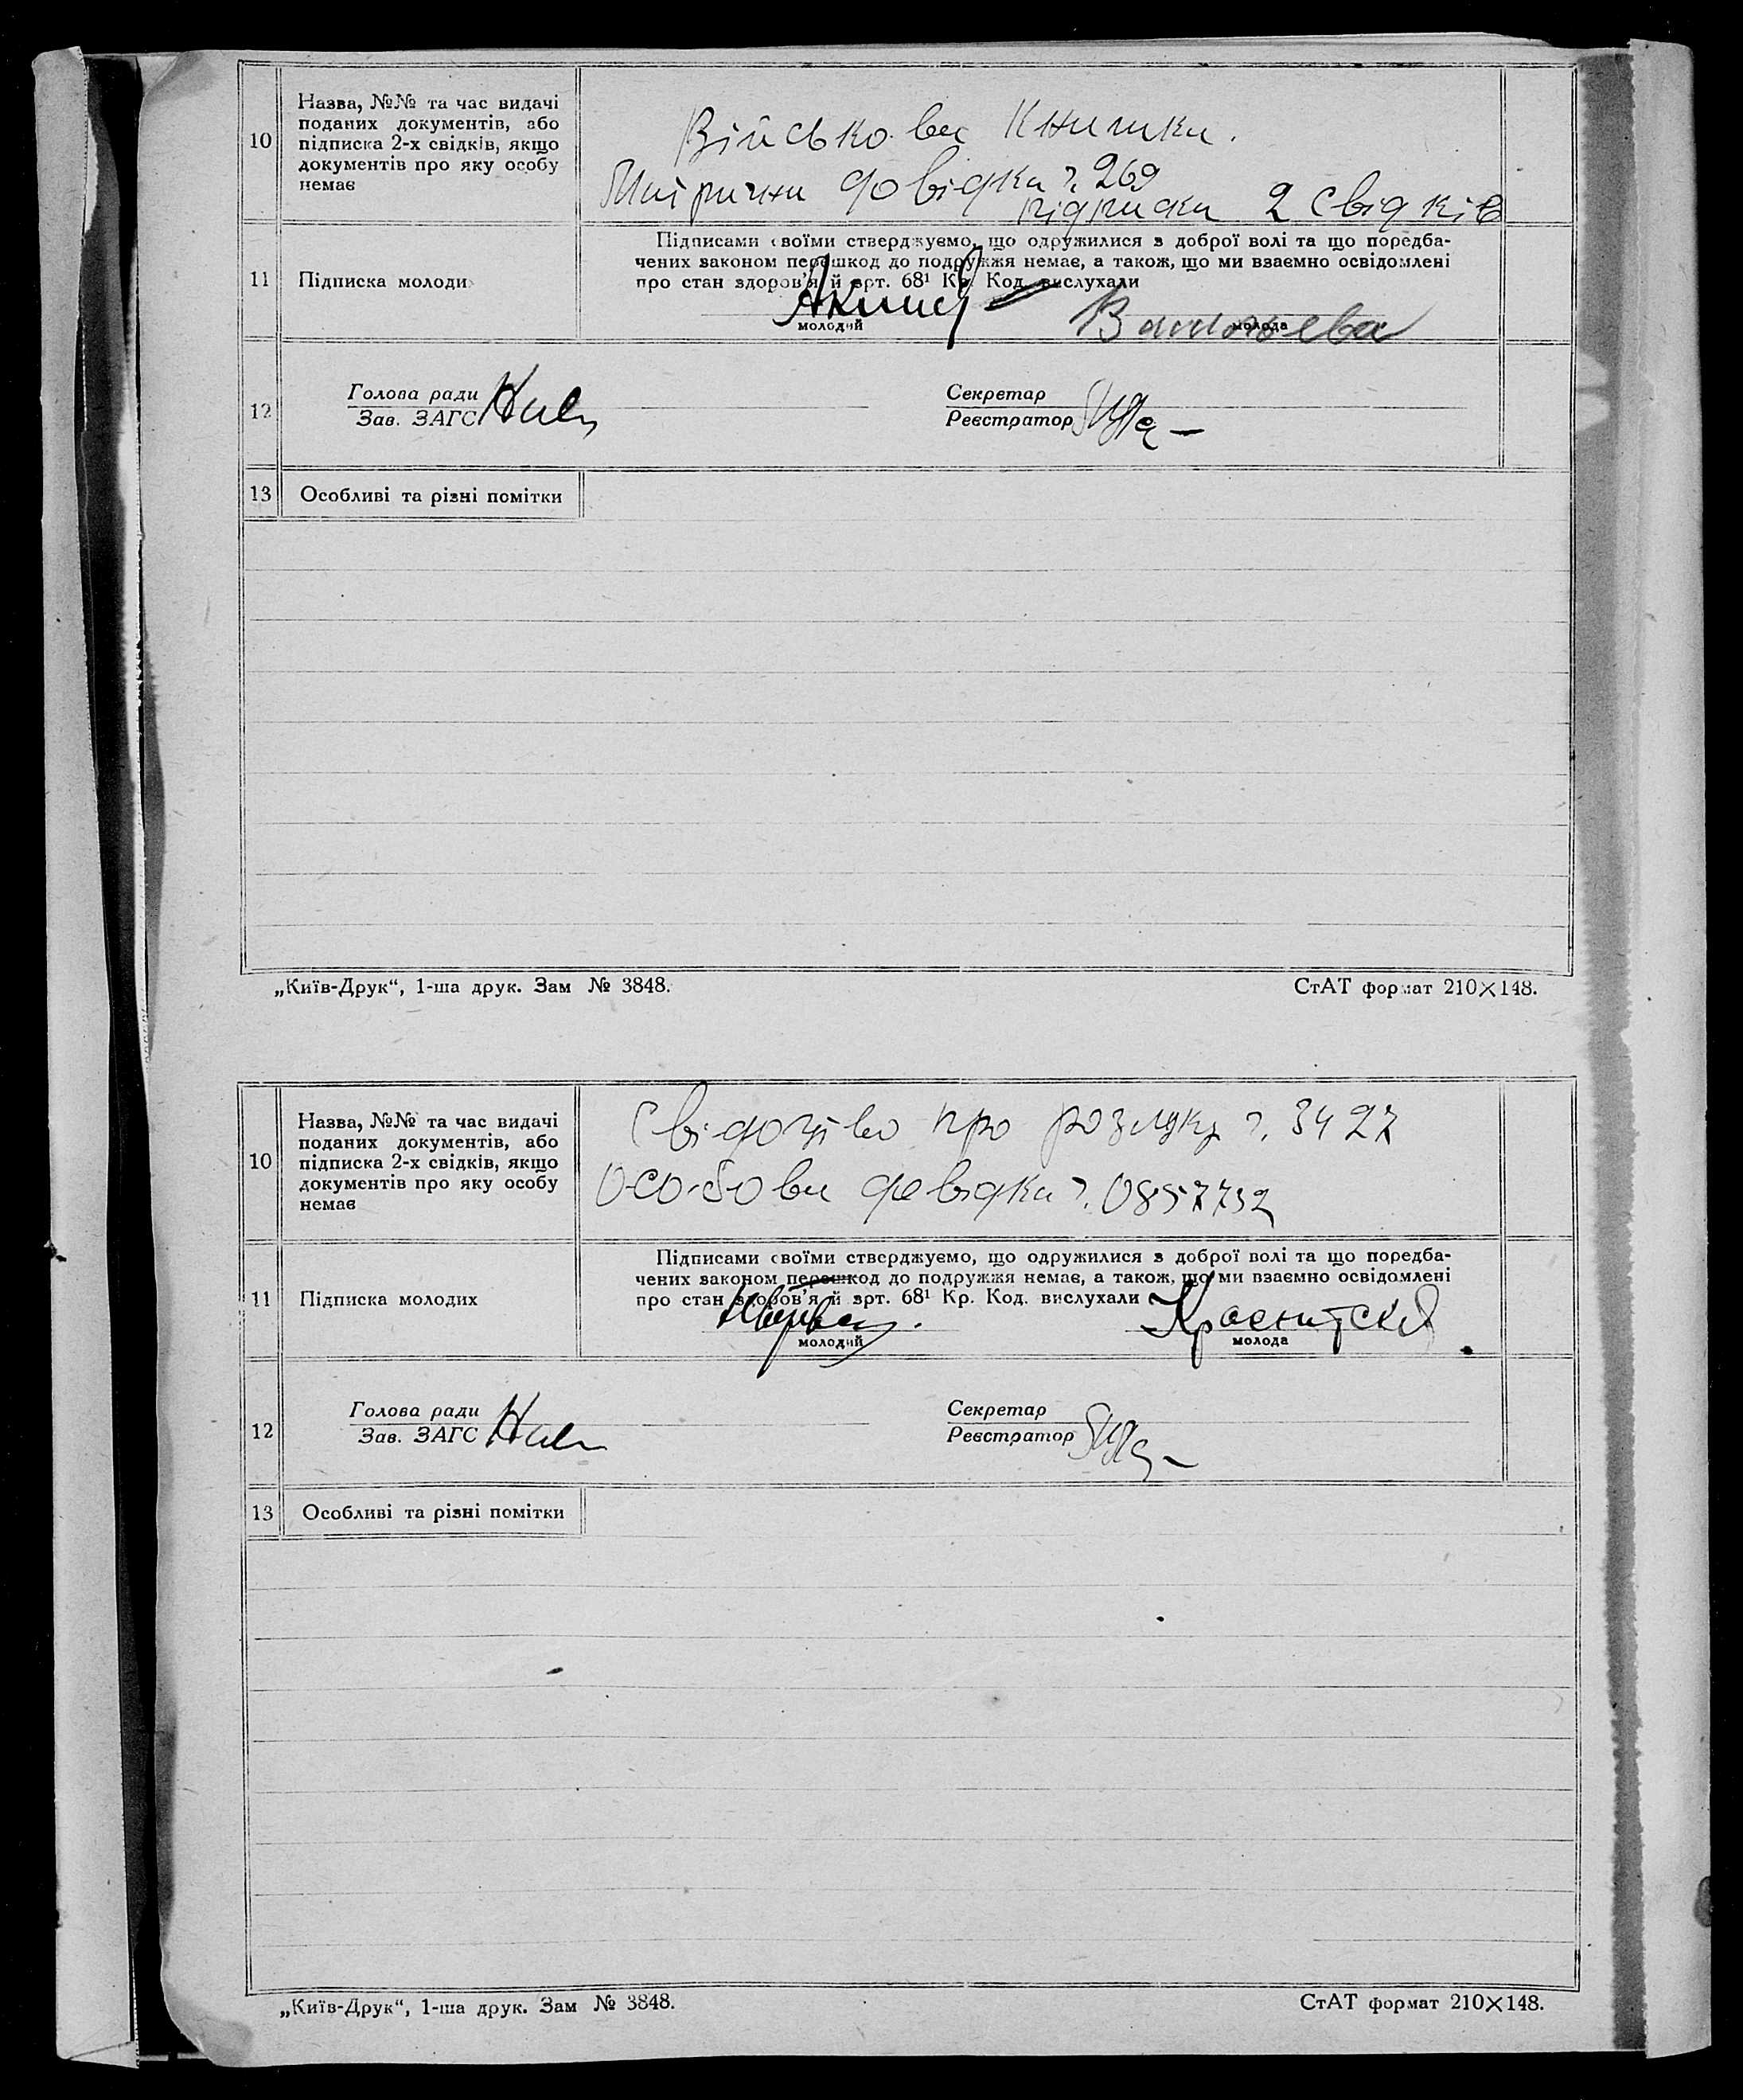 10
Назва, №№ та час видачі
поданих документів, або
підписка 2-х свідків, якщо
документів про яку особу
немає
Військова Книжка.
Митрична довідка ч. 269
підписка 2 свідків
11
Підписка молоди
Підписами своїми стверджуємо, що одружилися з доброї волі та що поредба-
чених законом перешкод до подружжя немає, а також, що ми взаємно освідомлені
про стан здоров'я й арт. 68¹ Кр. Код. вислухали
молодий
молода
12
Голова ради
Зав. ЗАГС
Секретар
Реєстратор
13
Особливі та різні помітки
„Київ-Друк“, 1-ша друк. Зам № 3848.
СтАТ формат 210×148.
10
Назва, №№ та час видачі
поданих документів, або
підписка 2-х свідків, якщо
документів про яку особу
немає
Свідоцтво про розлуку ч. 3427
Особова довідка ч. 0857732
11
Підписка молодих
Підписами своїми стверджуємо, що одружилися з доброї волі та що поредба-
чених законом перешкод до подружжя немає, а також, що ми взаємно освідомлені
про стан здоров'я й арт. 68¹ Кр. Код. вислухали
молодий
молода
12
Голова ради
Зав. ЗАГС
Секретар
Реєстратор
13
Особливі та різні помітки
„Київ-Друк“, 1-ша друк. Зам № 3848.
СтАТ формат 210×148.